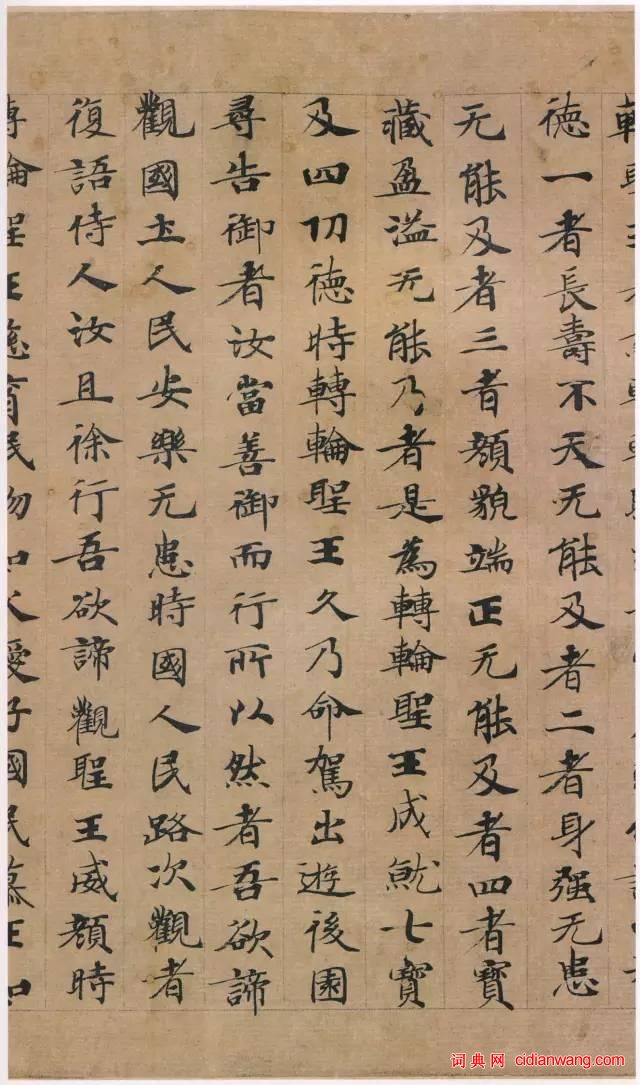 德一者長壽不夭无能及者二者身强无患
无能及者三者顏貌端正无能及者四者寶
藏盈溢无能乃者是為轉輪聖王成就七寶
及四功德時轉輪聖王久乃命駕出遊後園
尋告御者汝當善御而行所以然者吾欲諦
觀國土人民安樂无患時國人民路次觀者
復語侍人汝且徐行吾欲諦觀聖王威顏時
轉輪聖王慈育民物如父愛子國民慕王如
词典网 cidianwang.com